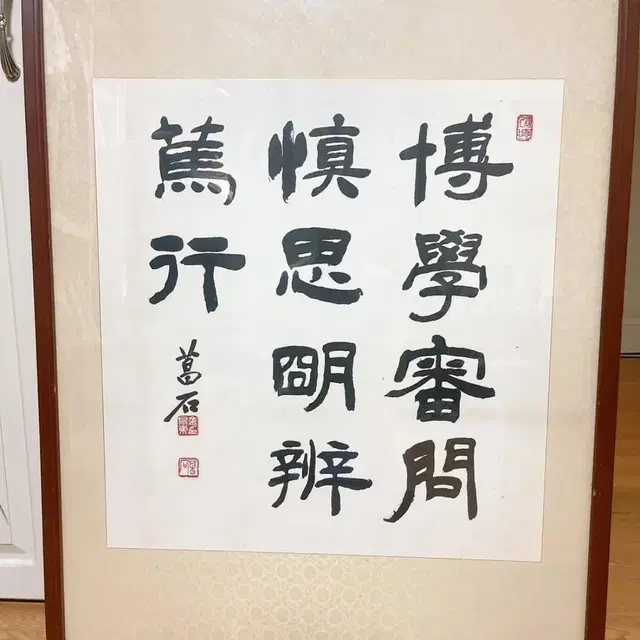 博學審問
慎思明辨
篤行
葛石